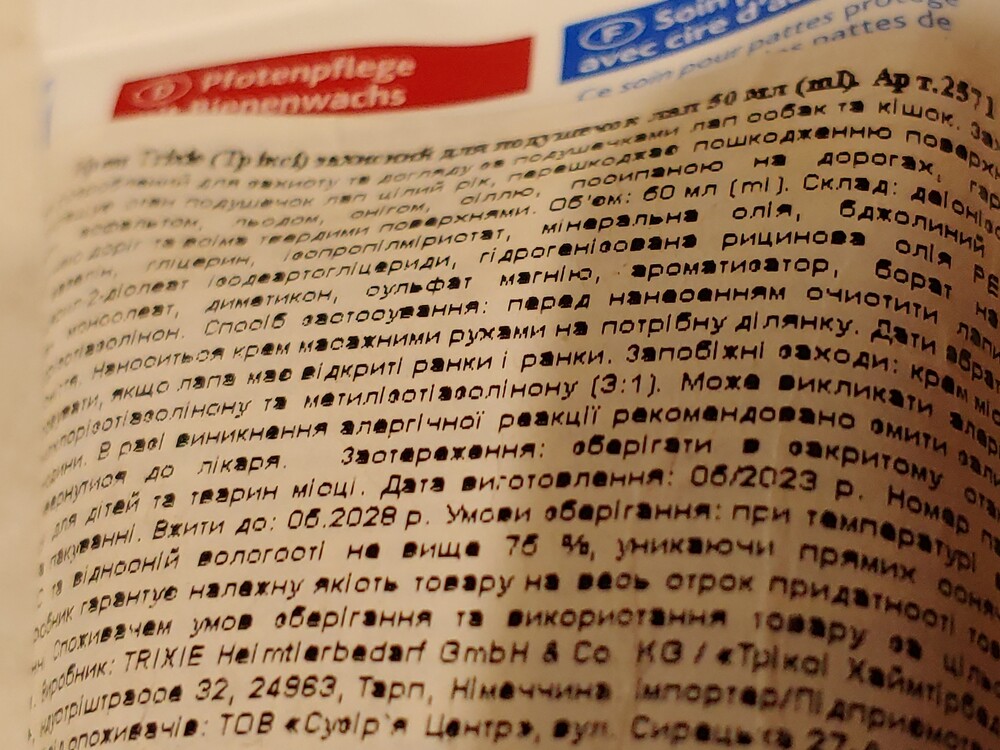 D Pfotenpflege
Bienenwachs
F Soin
avec cire d'a
Ce soin pour pattes protège
pattes de
Крем Trixie (Тріксі) захисний для подушечок лап 50 мл (ml). Арт.2571
для захисту та догляду за подушечками лап собак та кішок. За
стан подушечок лап цілий рік, перешкоджає пошкодженню поверхн
асфальтом, льодом, снігом, сіллю, посипаною на дорогах, гар
доріг та всіма твердими поверхнями. Об'єм: 50 мл (ml). Склад: деіоніз
гліцерин, ізопропілміристат, мінеральна олія, бджолиний
2-діолеат ізодеартогліцериди, гідрогенізована рицинова олія PE
моноолеат, диметикон, сульфат магнію, ароматизатор, борат на
отіазолінон. Спосіб застосування: перед нанесенням очистити лапи
Наноситься крем масажними рухами на потрібну ділянку. Дати абра
якщо лапа має відкриті ранки і ранки. Запобіжні заходи: крем міс
хлорізотіазолінону та метилізотіазолінону (3:1). Може викликати алерг
В разі виникнення алергічної реакції рекомендовано змити зали
вернутися до лікаря. Застереження: зберігати в закритому ста
для дітей та тварин місці. Дата виготовлення: 06/2023 р. Номер па
пакуванні. Вжити до: 06.2028 р. Умови зберігання: при температурі
С та відносній вологості не вище 75 %, уникаючи прямих соня
обник гарантує належну якість товару на весь строк придатності тов
Споживачем умов зберігання та використання товару за ціль
Виробник: TRIXIE Heimtierbedarf GmbH & Co KG / «Тріксі Хаймтірбед
ндустріштрассе 32, 24963, Тарп, Німеччина Імпортер/Підприємст
споживачів: ТОВ «Сузір'я Центр», вул. Сирецька 27